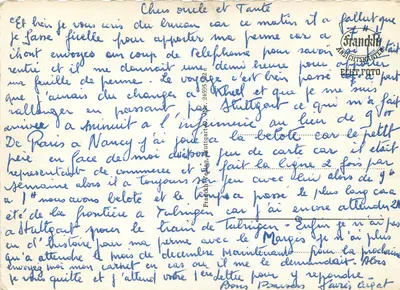 Chers oncle et Tante
Et bien je vous écris du bureau car ce matin il a fallut que
je fasse fissa pour apporter ma perme car a
étient envoyés un coup de telephone pour savoir si j'étais
rentré et il me donnait une demi heure pour apporter
ma feuille de perme. Le voyage c'est bien passé sauf
que j'aurais du changer a Khel et que je me suis
rallonger en passant par Stuttgart ce qui m'a fait
arrivée a minuit a l'infirmerie au lieu de 9h
De Paris a Nancy j'ai joué a la belote car le petit
père en face de moi avait un jeu de carte car il était
representant de commerce et il fait la ligne 2 fois par
semaine alors il a toujours un jeu avec lui alors de 9h
a 1h nous avons beloté et le temps a passé le plus long ca a
été de la frontière a Tubingen car j'ai encore attendu 2h
a Stuttgart pour le train de Tubingen - Enfin je n'ai pas
eu d'histoire pour ma perme avec le Margis je n'ai plus
qu'a attendre le mois de decembre maintenant pour la prochaine
envoyez moi mon carnet en cas ou il me le demandait. Alors
je vous quitte et j'attend votre 1ere lettre pour y repondre.
Bons Baisers
Standard